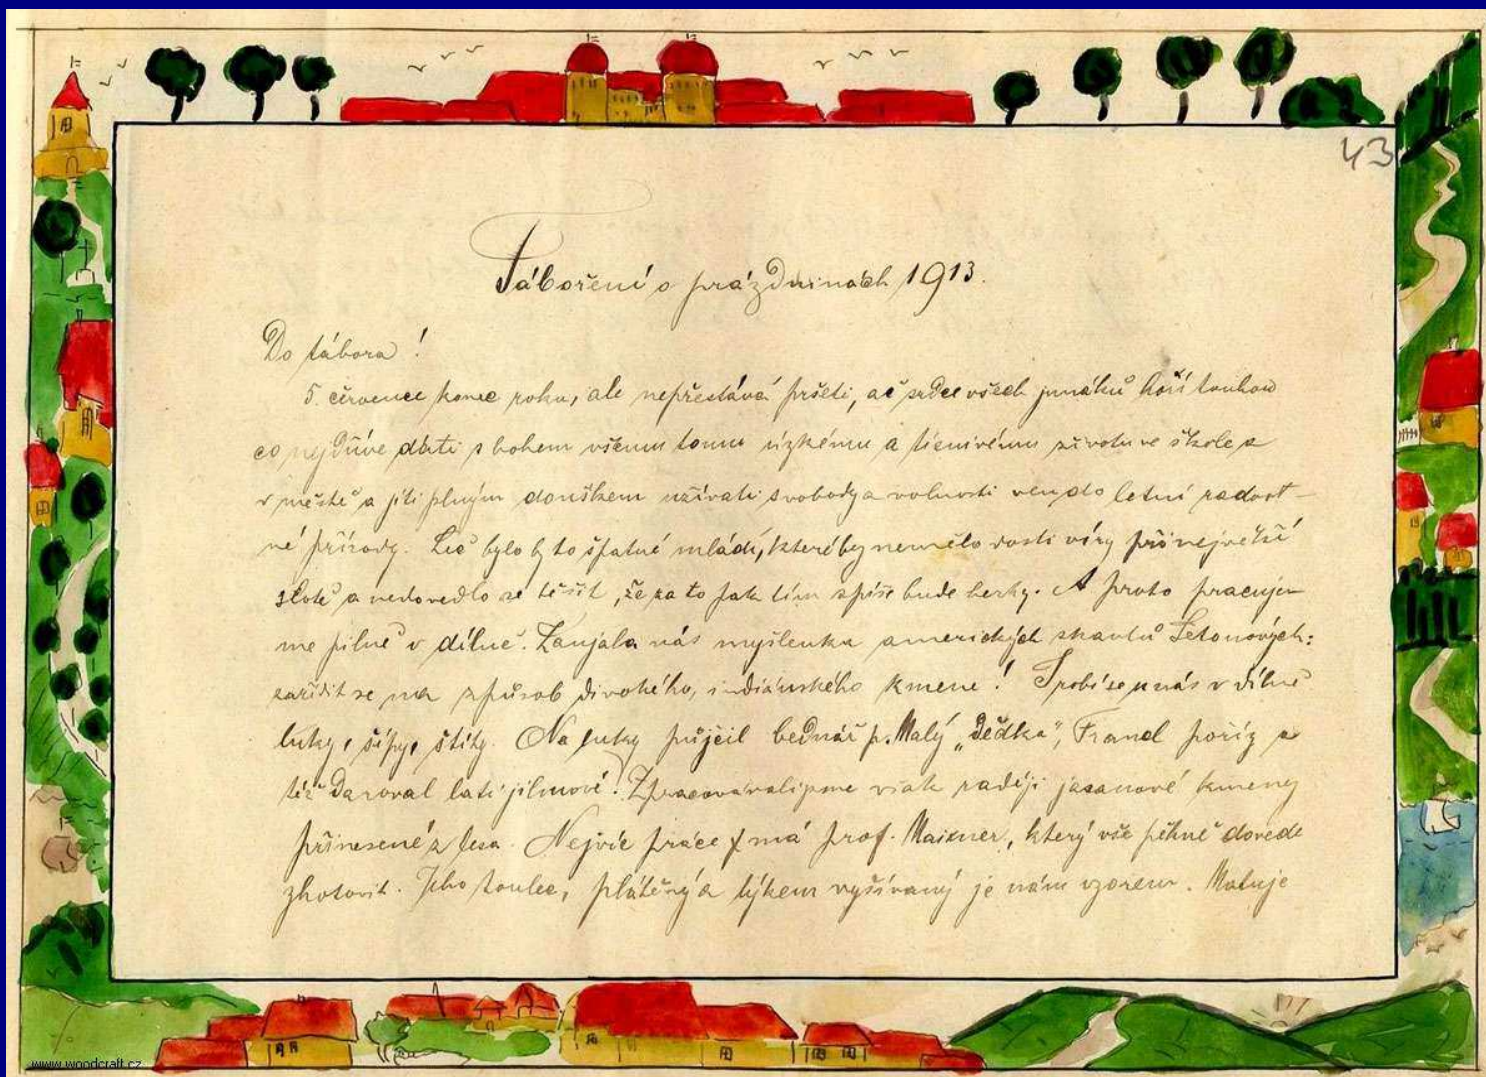 43
Táboření o prázdninách 1913.
Do tábora!
5. července konec roku, ale nepřestává pršeti, ač srdce všech junáků hoří touhou
co nejdříve dáti s bohem všemu tomu úzkému a tísnivému životu ve škole a
v městě a jíti plným douškem užívati svobody a volnosti ven do letní radost-
né přírody. Leč bylo by to špatné mládí, které by nemělo dosti víry při největší
slotě a nedovedlo se těšit, že za to pak tím spíše bude hezky. A proto pracuje-
me pilně v dílně. Zaujala nás myšlenka amerických skautů Setonových:
zařídit se na způsob divokého, indiánského kmene! Trobí se u nás v dílně
luky, šípy, štíty. Na luky půjčil bednář p. Malý „Dědka", Francl pořiz a
též daroval latě jilmové! Zpracovávali jsme však raději jasanové kmeny
přinesené z lesa. Nejvíc práce má prof. Maixner, který vše pěkně dovede
zhotovit. Jeho toulec, plátěný a lýkem vyšívaný je nám vzorem. Maluje
www.woodcraft.cz